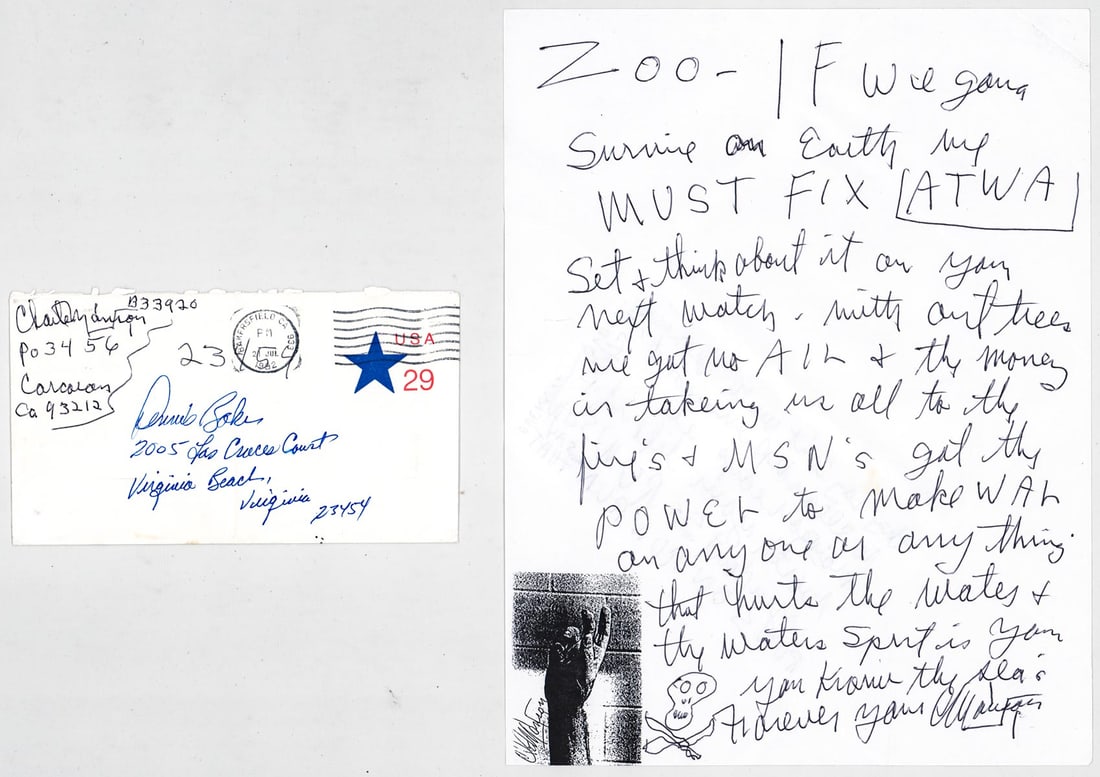 Charles Manson B33920
PO 3456
Corcoran
Ca 93212
23
BAKERSFIELD CA
PM
JUL
1992
USA
29
Dennis
2005 Las Cruces Court
Virginia Beach,
Virginia
23454
ZOO - IF we gona
Survive on Earth we
MUST FIX ATWA
Set & think about it on your
next watch. with out trees
we got no AIR & the money
is takeing us all to the
& MSN's got the
POWER to make WAR
on any one or any thing
that hurts the water &
the waters Sprit is you
you know the sea's
Forever your CManson
CManson